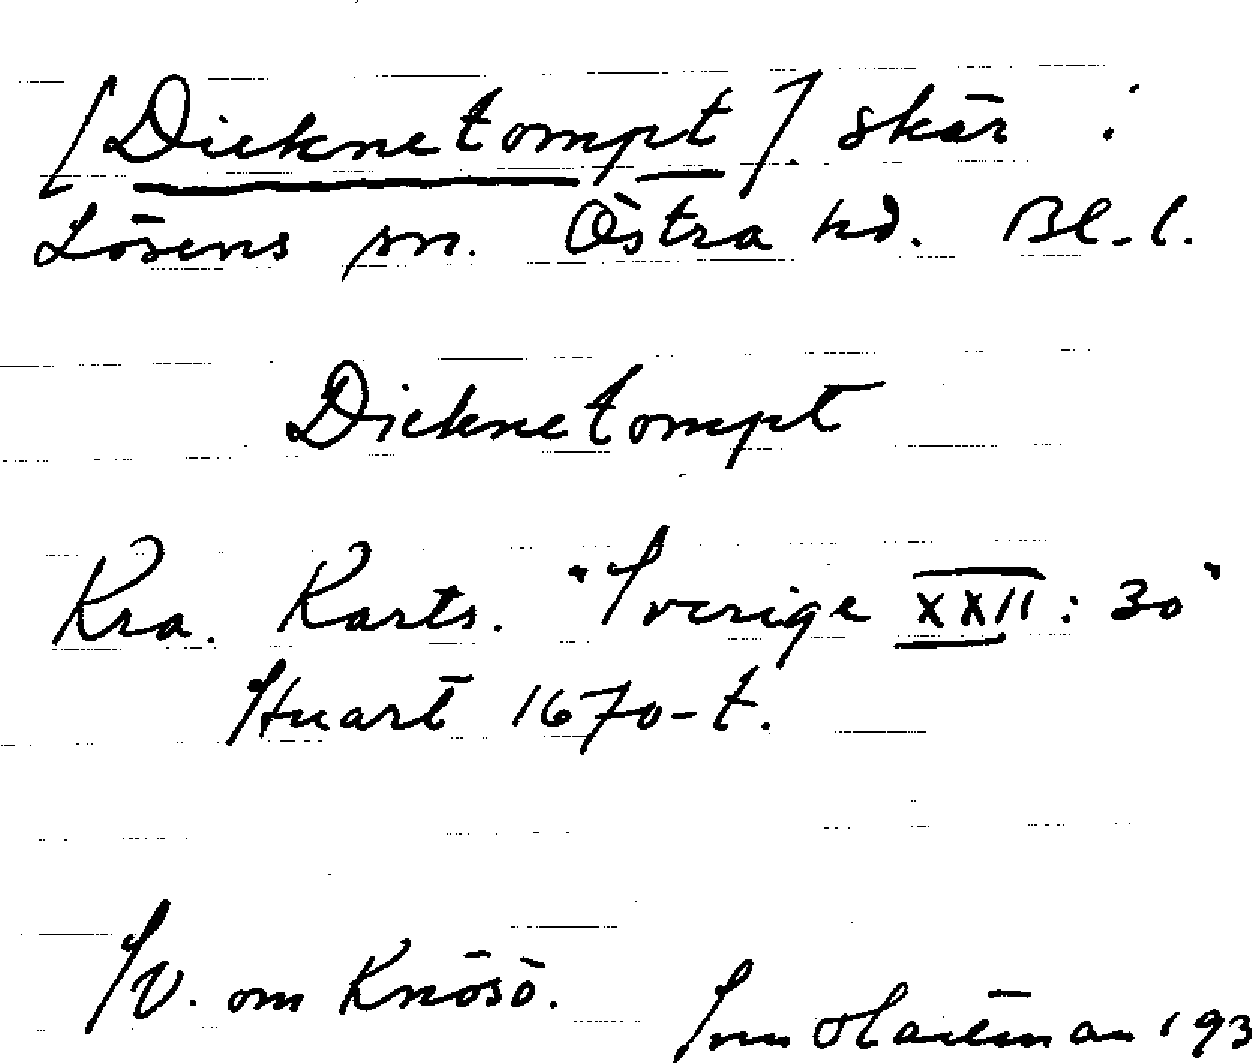 [Dieknetompt] skär i
Lösens sn. Östra hd. Bl. l.
Dieknetompt
Kra. Karts. "Sverige XXII: 30"
Huart 1670-t.
SV. om Knösö.
193